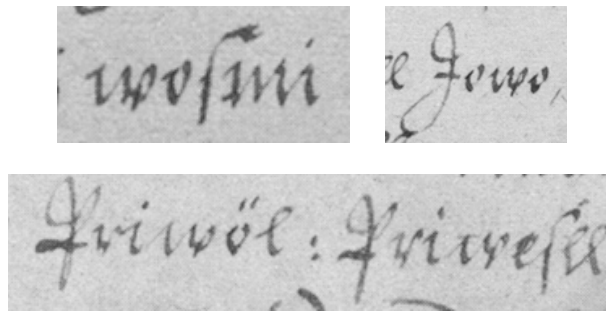 wosmi Jowo,
Priwöl : Priwesll